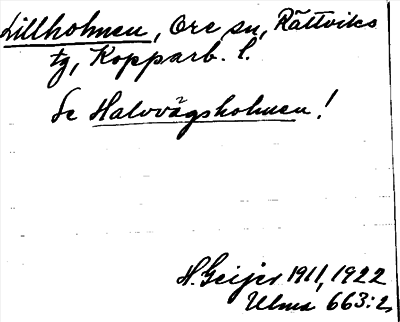 Lillholmen, Ore sn, Rättviks
tg, Kopparb. l.
Se Halvvägsholmen!
H. Geijer 1911, 1922
Ulma 663:2